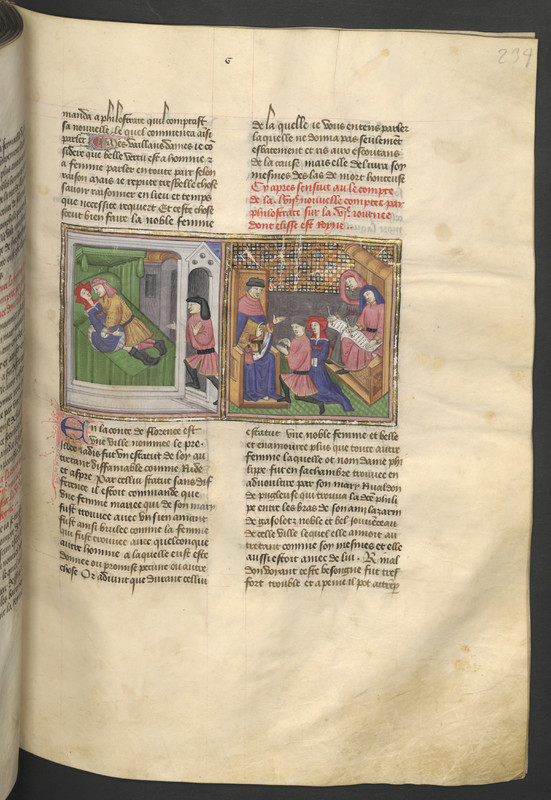 234
manda a philostrate quil comptast
sa nouvelle le quel commenca aisi
parler Mes vaillans dames ie co
sidere que belle vertu est a homme z
a femme parler en toute part selon
raison mais ie repute tresbelle chose
savoir raisonner en lieu et temps
que necessite requiert Et ceste chose
sceut bien faire la noble femme
de la quelle ie vous entens parler
la quelle ne donna pas seulement
esbatement et ris aux escoutans
de la cause mais elle delivra soy
mesmes des las de mort honteuse
Cy apres sensuit au le compte
de la nouvelle comptee par
philostrate sur la iournee
dont elisse est Royne
En la conte de florence est
une ville nommee le pre
iadis fut un estatut de loy au
tretant diffamable comme Ride
et aspre Par cellui statut sans dif
ference il estoit commande que
une femme mariee qui de son mary
fust trouvee avec un sien amant
fust ainsi bruslee comme la femme
qui fust trouvee avec quelconque
autre homme a laquelle eust este
donnee ou promise pecune ou autre
chose Or advint que durant cellui
estatut une noble femme et belle
et enamouree plus que toute autre
femme laquelle ot nom dame phi
lipe fut en sa chambre trouvee en
adivoultire par son mary Rinaldon
de pugliese qui trouva la dce phili
pe entre les bras de son ami lazarin
de gasoletz noble et bel iouvenceau
de celle ville lequel elle amoit au
tretant comme soy mesmes et elle
aussi estoit amee de lui Rinal
don voyant ceste besongne fut tres
fort trouble et a peine il pot attemp